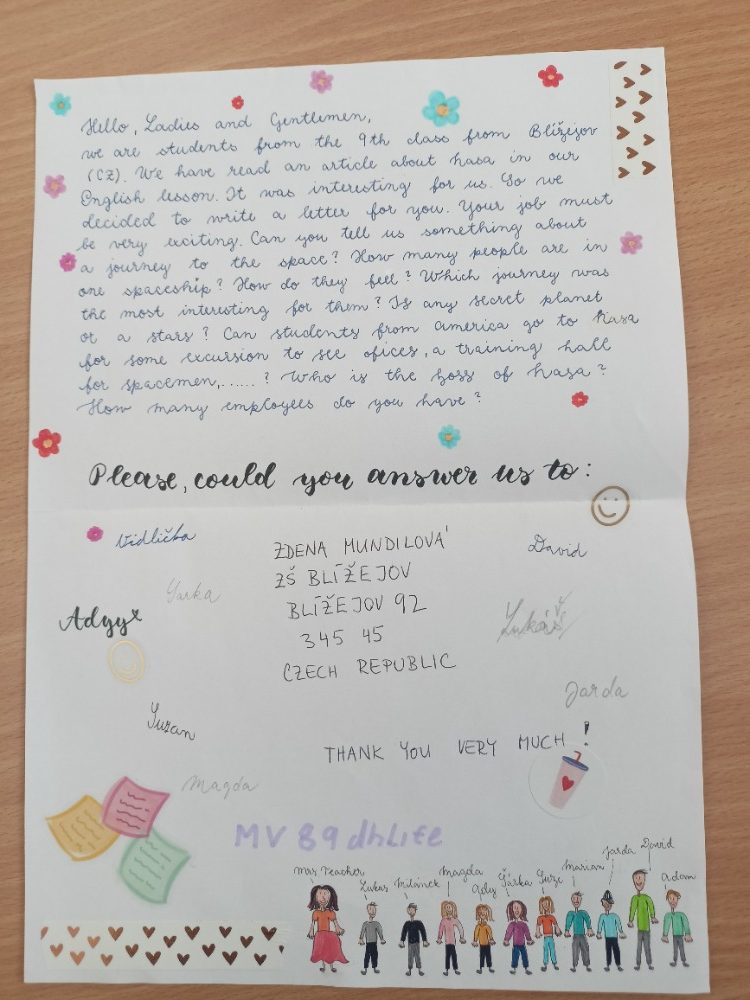 Hello, Ladies and Gentlemen,
we are students from the 9th class from Blížejov
(CZ). We have read an article about nasa in our
English lesson. It was interesting for us. So we
decided to write a letter for you. Your job must
be very exciting. Can you tell us something about
a journey to the space? How many people are in
one spaceship? How do they feel? Which journey was
the most interesting for them? Is any secret planet
or a stars? Can students from america go to nasa
for some excursion to see ofices, a training hall
for spacemen,......? Who is the boss of nasa?
How many employees do you have?
Please, could you answer us to:
Vidlička
ZDENA MUNDILOVÁ
David
ZŠ BLÍŽEJOV
Šarka
BLÍŽEJOV 92
Adyy
Lukáš
345 45
CZECH REPUBLIC
Jarda
Zuzan
THANK YOU VERY MUCH!
Magda
MV 89 dhLife
Mrs Teacher
Lukas
Milánek
Magda
Ady
Šárka
Zuze
Marian
Jarda
David
Adam